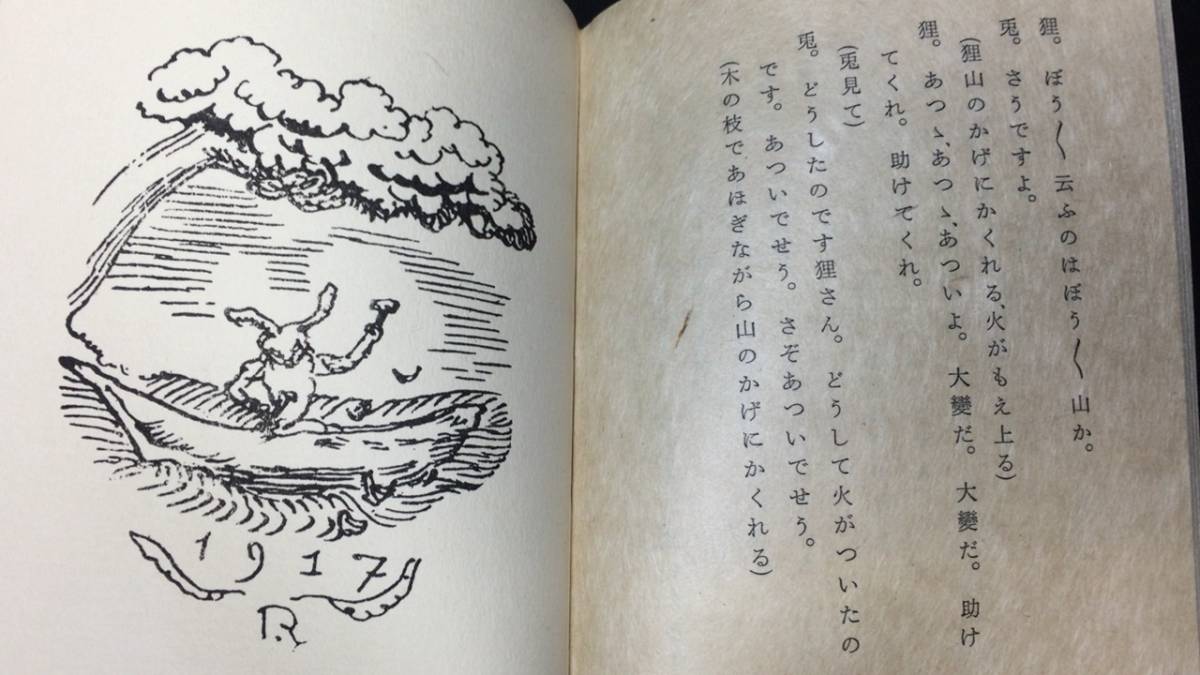 狸。ぼう〱云ふのはぼう〱山か。
兎。さうですよ。
(狸山のかげにかくれる、火がもえ上る)
狸。あつゝ、あつゝ、あついよ。大變だ。大變だ。助け
てくれ。助けてくれ。
(兎見て)
兎。どうしたのです狸さん。どうして火がついたの
です。あついでせう。さぞあついでせう。
(木の枝であほぎながら山のかげにかくれる)
1917
R